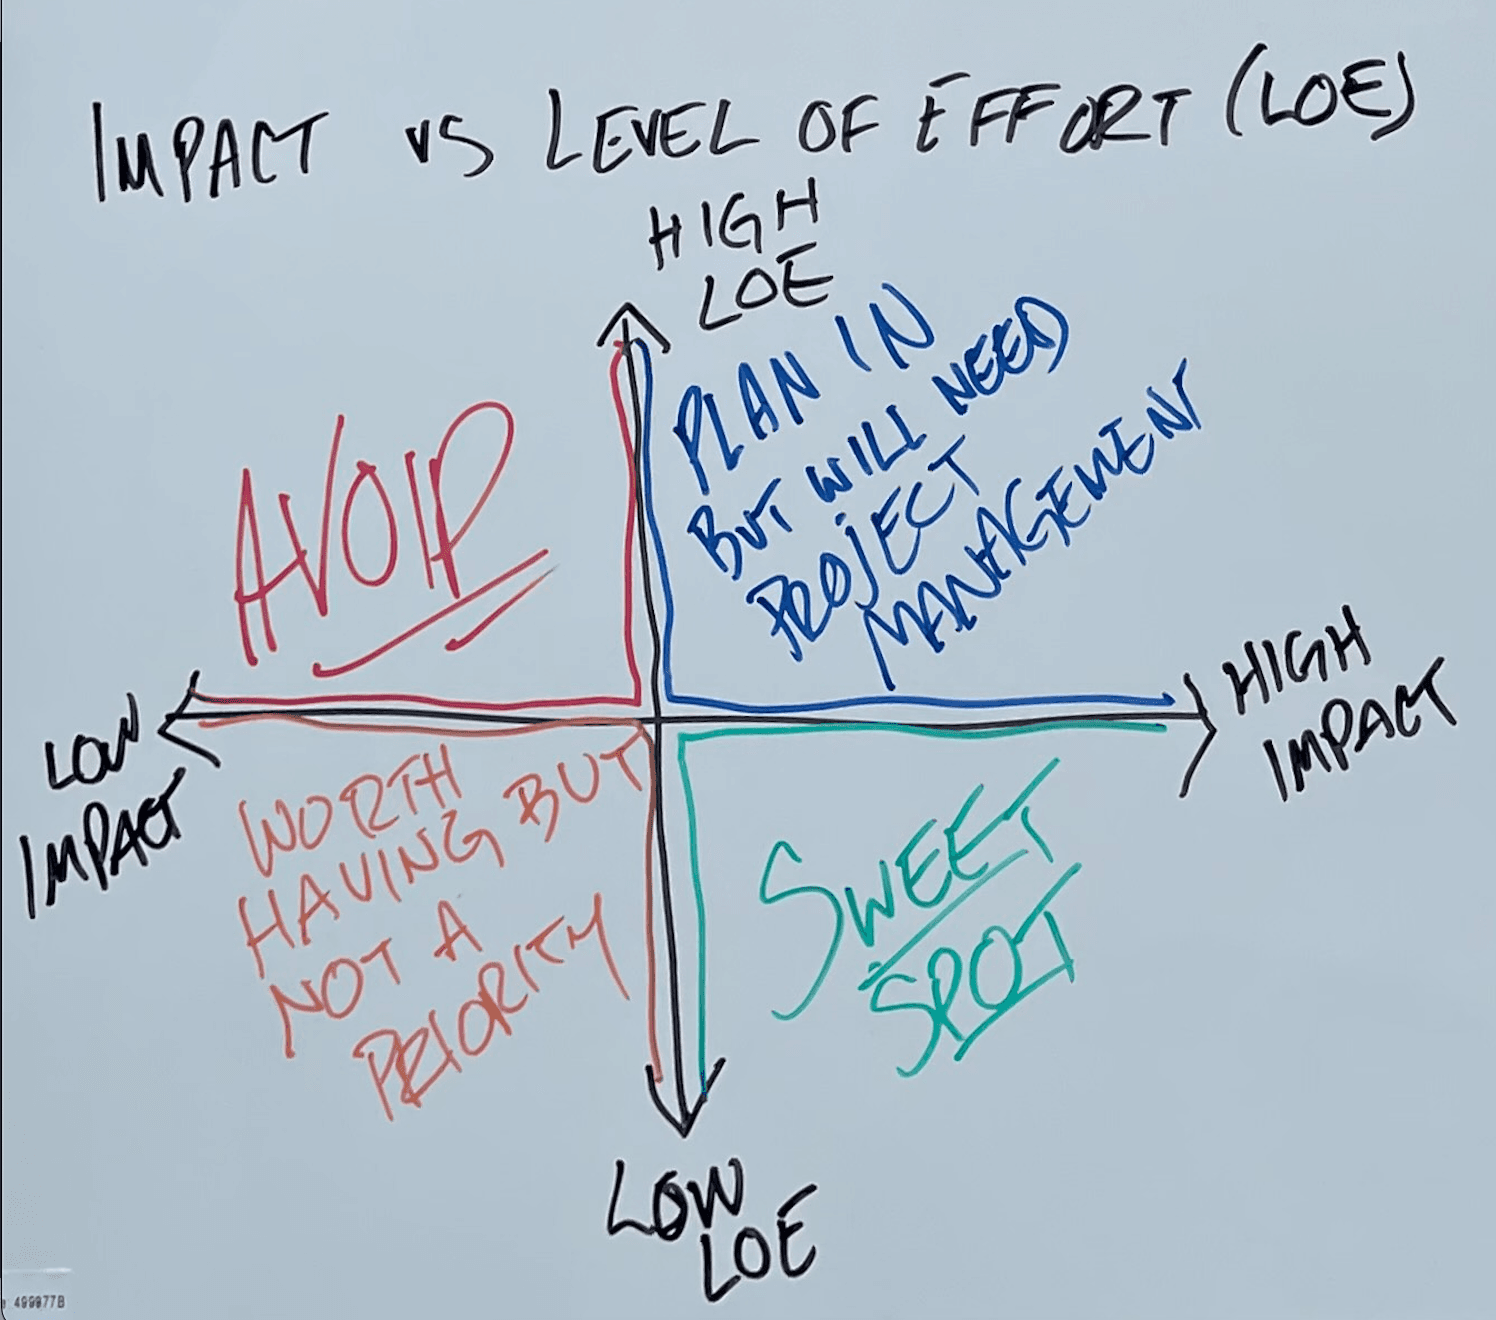 IMPACT VS LEVEL OF EFFORT (LOE)
HIGH
LOE
AVOID
PLAN IN
BUT WILL NEED
PROJECT
MANAGEMENT
LOW
IMPACT
HIGH
IMPACT
WORTH
HAVING BUT
NOT A
PRIORITY
SWEET
SPOT
LOW
LOE
: 499977B